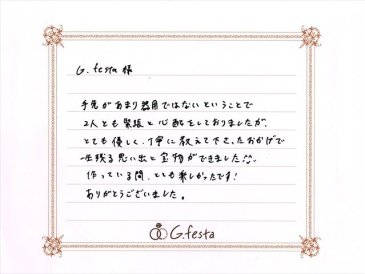 G.festa 様
手先があまり器用ではないということで
2人とも緊張と心配をしておりましたが、
とても優しく、丁寧に教えて下さったおかげで
一生残る思い出と宝物ができました!!
作っている間、とても楽しかったです!
ありがとうございました。
G.festa